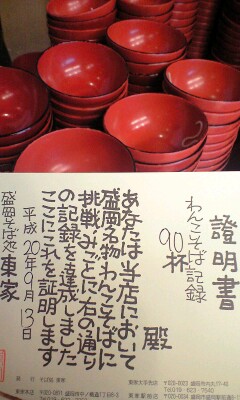 證明書
わんこそば記録
90杯
殿
あなたは当店において
盛岡名物わんこそばに
挑戦みごとに右の通り
の記録を達成しました
ここにこれを証明します
平成20年9月13日
盛岡そば処 東家